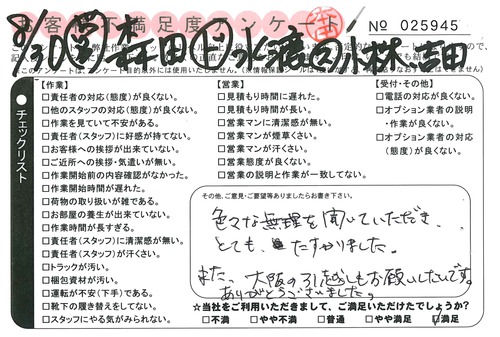 お客さま不満足度アンケート
No 025945
8/30 森田 水橋 小林 吉田
チェックリスト
【作業】
□責任者の対応(態度)が良くない。
□他のスタッフの対応(態度)が良くない。
□作業を見ていて不安がある。
□責任者(スタッフ)に好感が持てない。
□お客様への挨拶が出来ていない。
□ご近所への挨拶・気遣いが無い。
□作業開始前の内容確認がなかった。
□作業開始時間が遅れた。
□荷物の取り扱いが雑である。
□お部屋の養生が出来ていない。
□作業時間が長すぎる。
□責任者(スタッフ)に清潔感が無い。
□責任者(スタッフ)が汗くさい。
□トラックが汚い。
□梱包資材が汚い。
□運転が不安(下手)である。
□靴下の履き替えをしてない。
□スタッフにやる気がみられない。
【営業】
□見積もり時間に遅れた。
□見積もり時間が長い。
□営業マンに清潔感が無い。
□営業マンが煙草くさい。
□営業マンが汗くさい。
□営業態度が良くない。
□営業の説明と作業が一致してない。
【受付・その他】
□電話の対応が良くない。
□オプション業者の説明
・作業が良くない。
□オプション業者の対応
(態度)が良くない。
その他、ご意見・ご要望等ありましたらお書き下さい。
色々な無理を聞いていただき、
とても、たすかりました。
また、大阪の引越しもお願いしたいです。
ありがとうございました。
☆当社をご利用いただきまして、ご満足いただけたでしょうか?
□不満 □やや不満 □普通 □やや満足 ☑満足